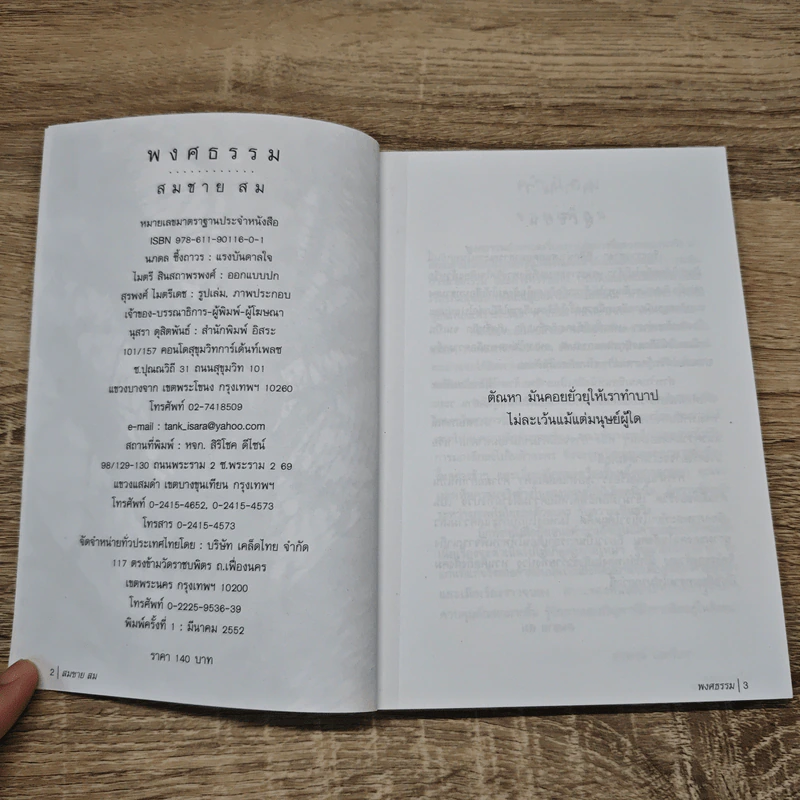 พงศธรรม
............
สมชาย สม
หมายเลขมาตราฐานประจำหนังสือ
ISBN 978-611-90116-0-1
นภดล ซึ้งถาวร : แรงบันดาลใจ
ไมตรี สินสถาพรพงศ์ : ออกแบบปก
สุรพงศ์ ไมตรีเดช : รูปเล่ม, ภาพประกอบ
เจ้าของ-บรรณาธิการ-ผู้พิมพ์-ผู้โฆษณา
นุสรา ดุสิตพันธ์ : สำนักพิมพ์ อิสระ
101/157 คอนโดสุขุมวิทการ์เด้นท์เพลซ
ซ.ปุณณวิถี 31 ถนนสุขุมวิท 101
แขวงบางจาก เขตพระโขนง กรุงเทพฯ 10260
โทรศัพท์ 02-7418509
e-mail : tank_isara@yahoo.com
สถานที่พิมพ์ : หจก. สิริโชค ดีไซน์
98/129-130 ถนนพระราม 2 ซ.พระราม 2 69
แขวงแสมดำ เขตบางขุนเทียน กรุงเทพฯ
โทรศัพท์ 0-2415-4652, 0-2415-4573
โทรสาร 0-2415-4573
จัดจำหน่ายทั่วประเทศไทยโดย : บริษัท เคล็ดไทย จำกัด
117 ตรงข้ามวัดราชบพิตร ถ.เฟื่องนคร
เขตพระนคร กรุงเทพฯ 10200
โทรศัพท์ 0-2225-9536-39
พิมพ์ครั้งที่ 1 : มีนาคม 2552
ราคา 140 บาท
2 | สมชาย สม
ตัณหา มันคอยยั่วยุให้เราทำบาป
ไม่ละเว้นแม้แต่มนุษย์ผู้ใด
พงศธรรม | 3